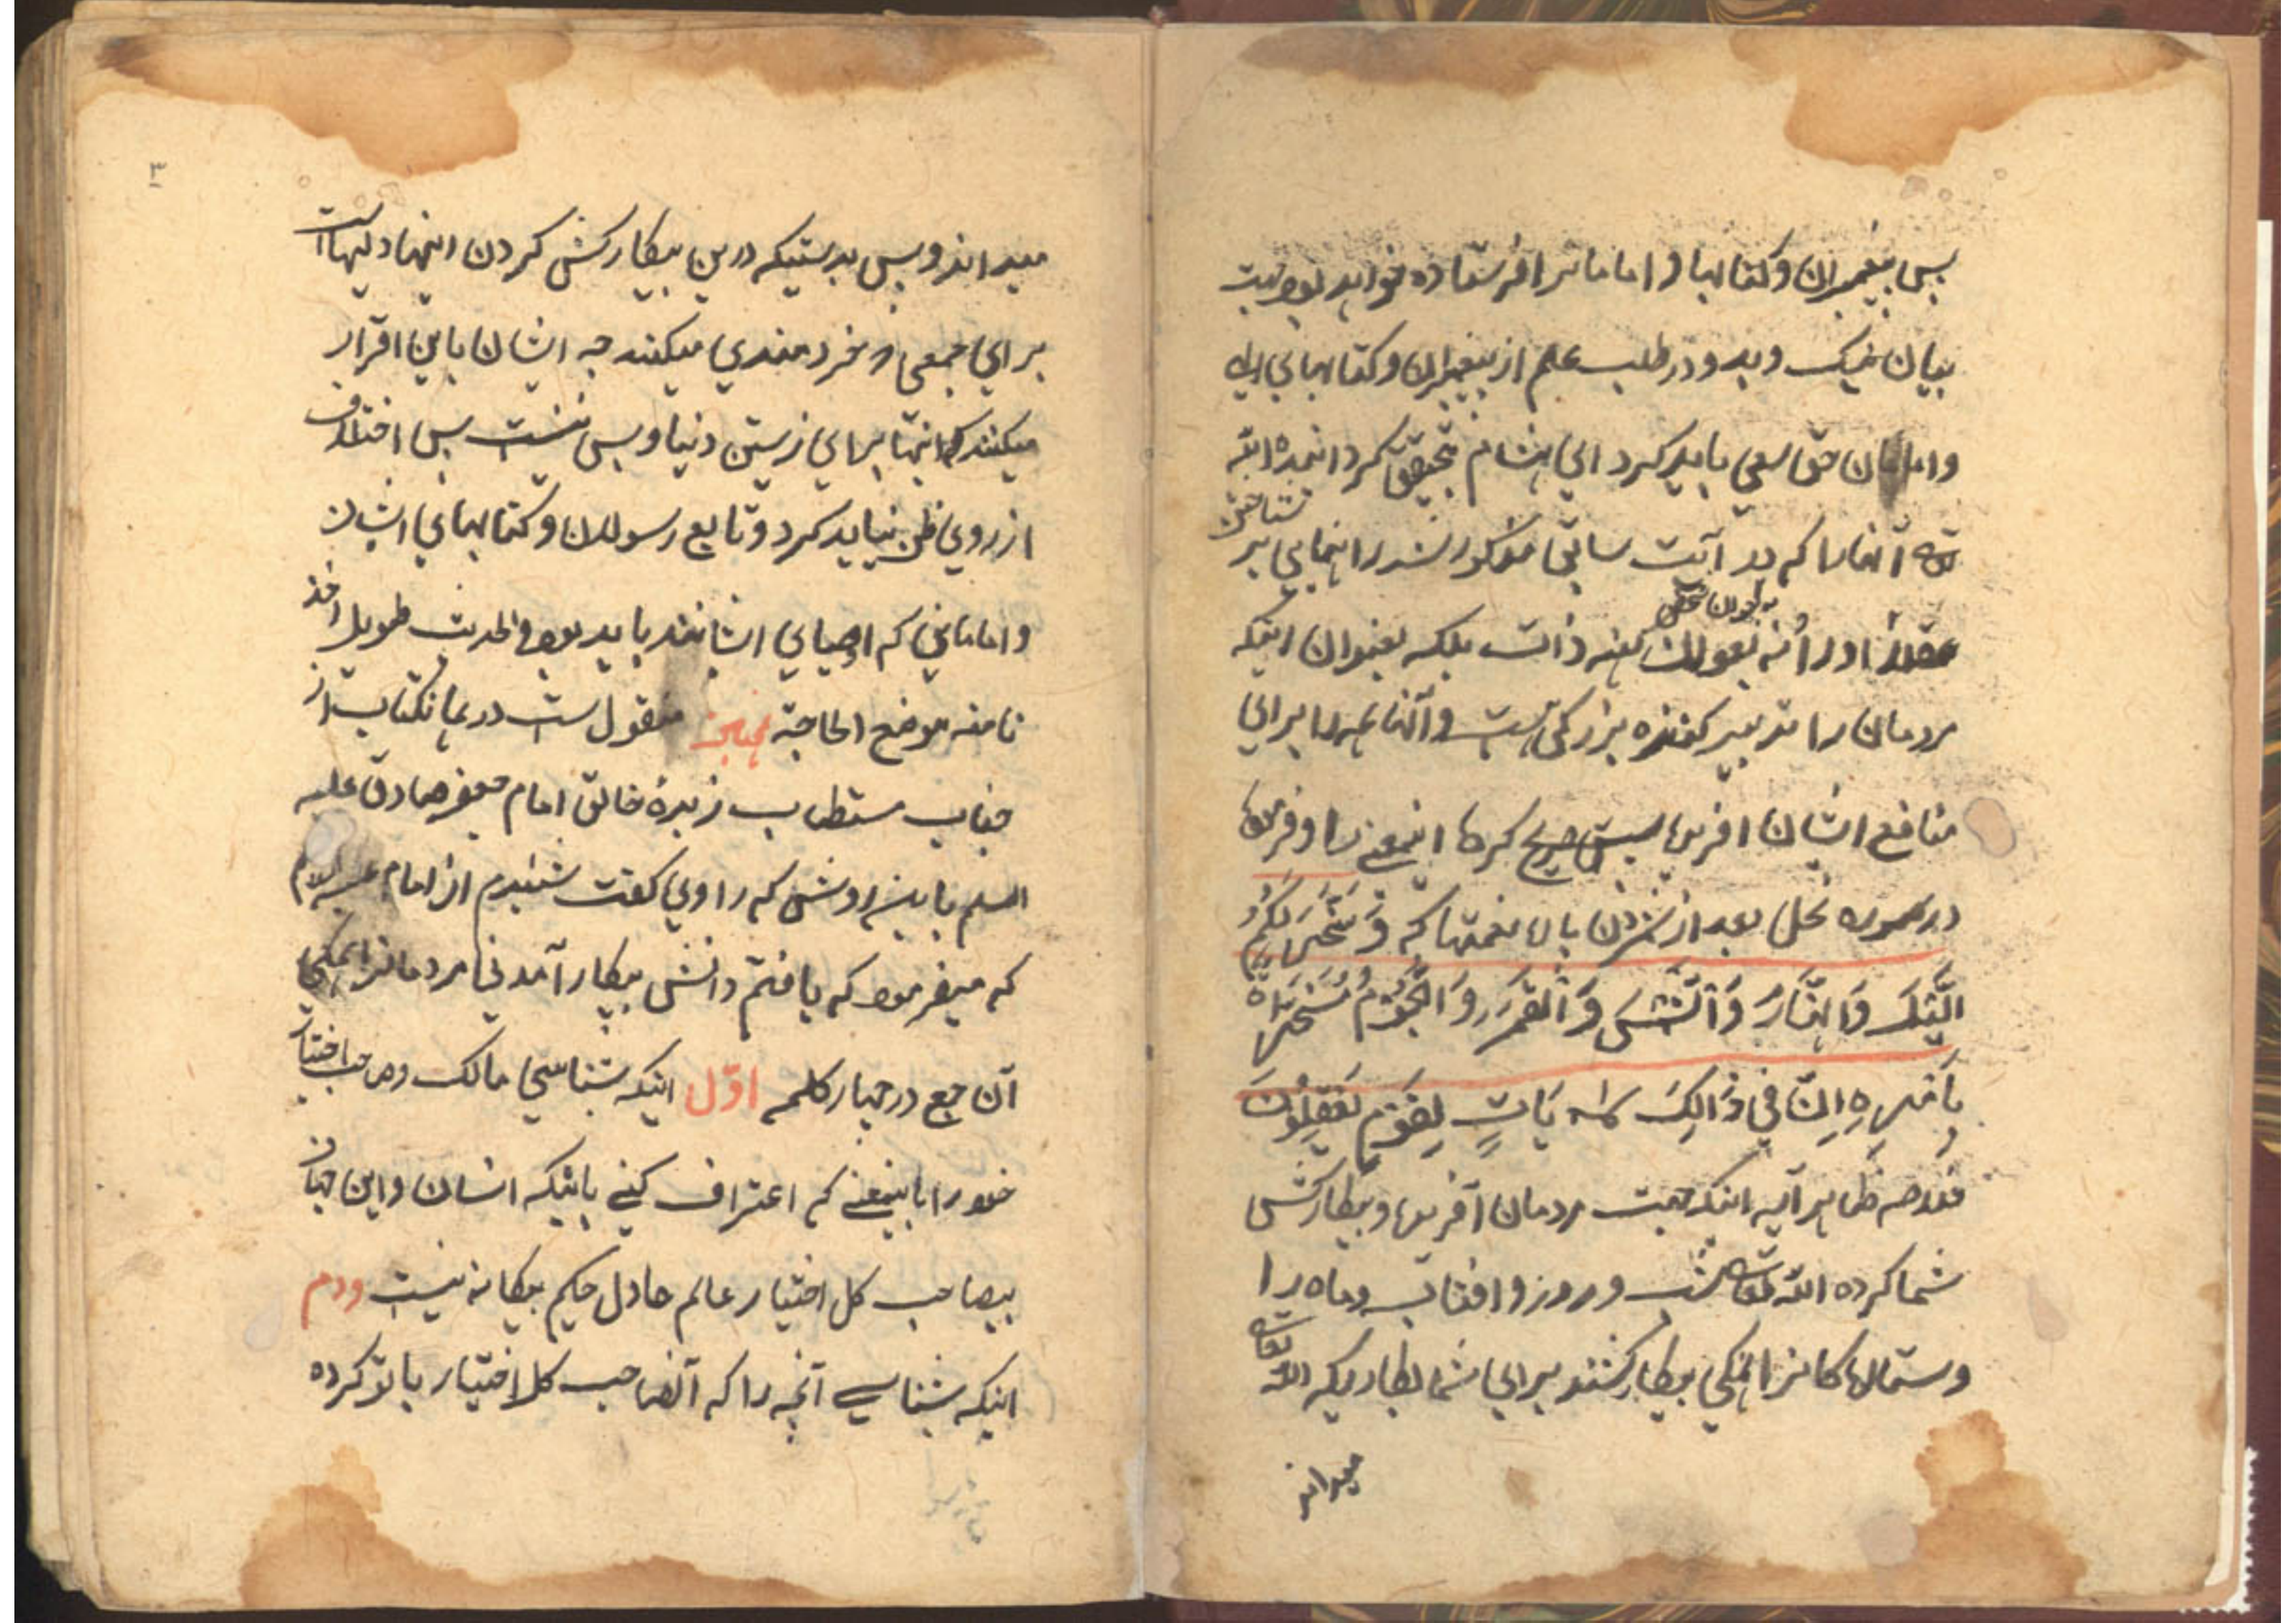 پس پیغمبران و کتابها و امامانرا فرستاده خواهد بود جهت
بیان نیک و بد و در طلب علم از پیغمبران و کتابهای ایشان
و امامان حق سعی باید کرد ای هشام بتحقیق کردانیده الله
تعالی آنها را که در آیت سابق مذکور شد راهنمایی بر شناختن
او را نه بعنوان کنه ذات بلکه بعنوان اینکه
مردمان را تدبیر کننده بزرکی هست و آنها همه را برای
منافع ایشان افریده پس صریح کرده اینمعنی را و فرموده
در سوره نحل بعد از شمردن باران نعمتها که وَسَخَّرَ لَكُمُ
الَّيْلَ وَالنَّهَارَ وَالشَّمْسَ وَالْقَمَرَ وَالنُّجُومُ مُسَخَّرَاتٌ
بِأَمْرِهِ إِنَّ فِي ذَالِكَ لَآيَاتٍ لِقَوْمٍ يَعْقِلُونَ
خلاصه ظاهر آیه اینکه جهت مردمان آفریده و بیکارکش
شما کرده الله تعالی شب و روز و افتاب و ماه را
و ستارها کانرا همکی بیکارکشند برای شما بکاریکه الله تعالی
میداند
میداند و بس بدرستیکه درین بیکارکش کردن اینها دلیهاست
برای جمعی که خردمندی میکنند چه ایشان باین اقرار
میکنند که اینها برای زیستن دنیا و بس نیست پس اختلاف
از روی ظن نباید کرد و تابع رسولان و کتابهای ایشان
و امامانی که اوصیای ایشانند باید بود و الحدیث طویل اخذ
نا منه موضع الحاجة منقول ست در همانکتاب از
جناب مستطاب زبدۀ خالق امام جعفر صادق علیه
السلم باین روش که راوی کفت شنیدم از امام علیه السلام
که میفرمود که یافتم دانش بکار آمدنی مردمانرا همکی
آن جمع در چهار کلمه اوّل اینکه شناسی مالک و صاحب اختیار
خود را باینمعنی که اعتراف کنی باینکه انسان و این جهان
بیصاحب کل اختیار عالم عادل حکیم یکانه نیست دوم
اینکه شناسی آنچه را که آنصاحب کل اختیار با تو کرده
۳